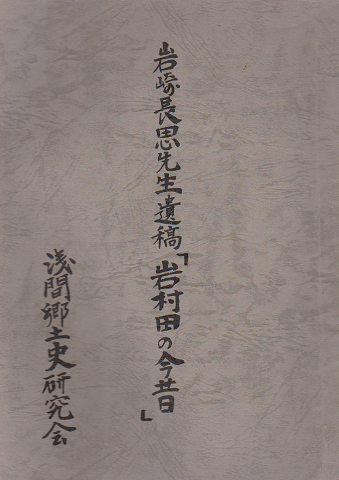 岩崎長思先生遺稿「岩村田の今昔」
浅間郷土史研究会